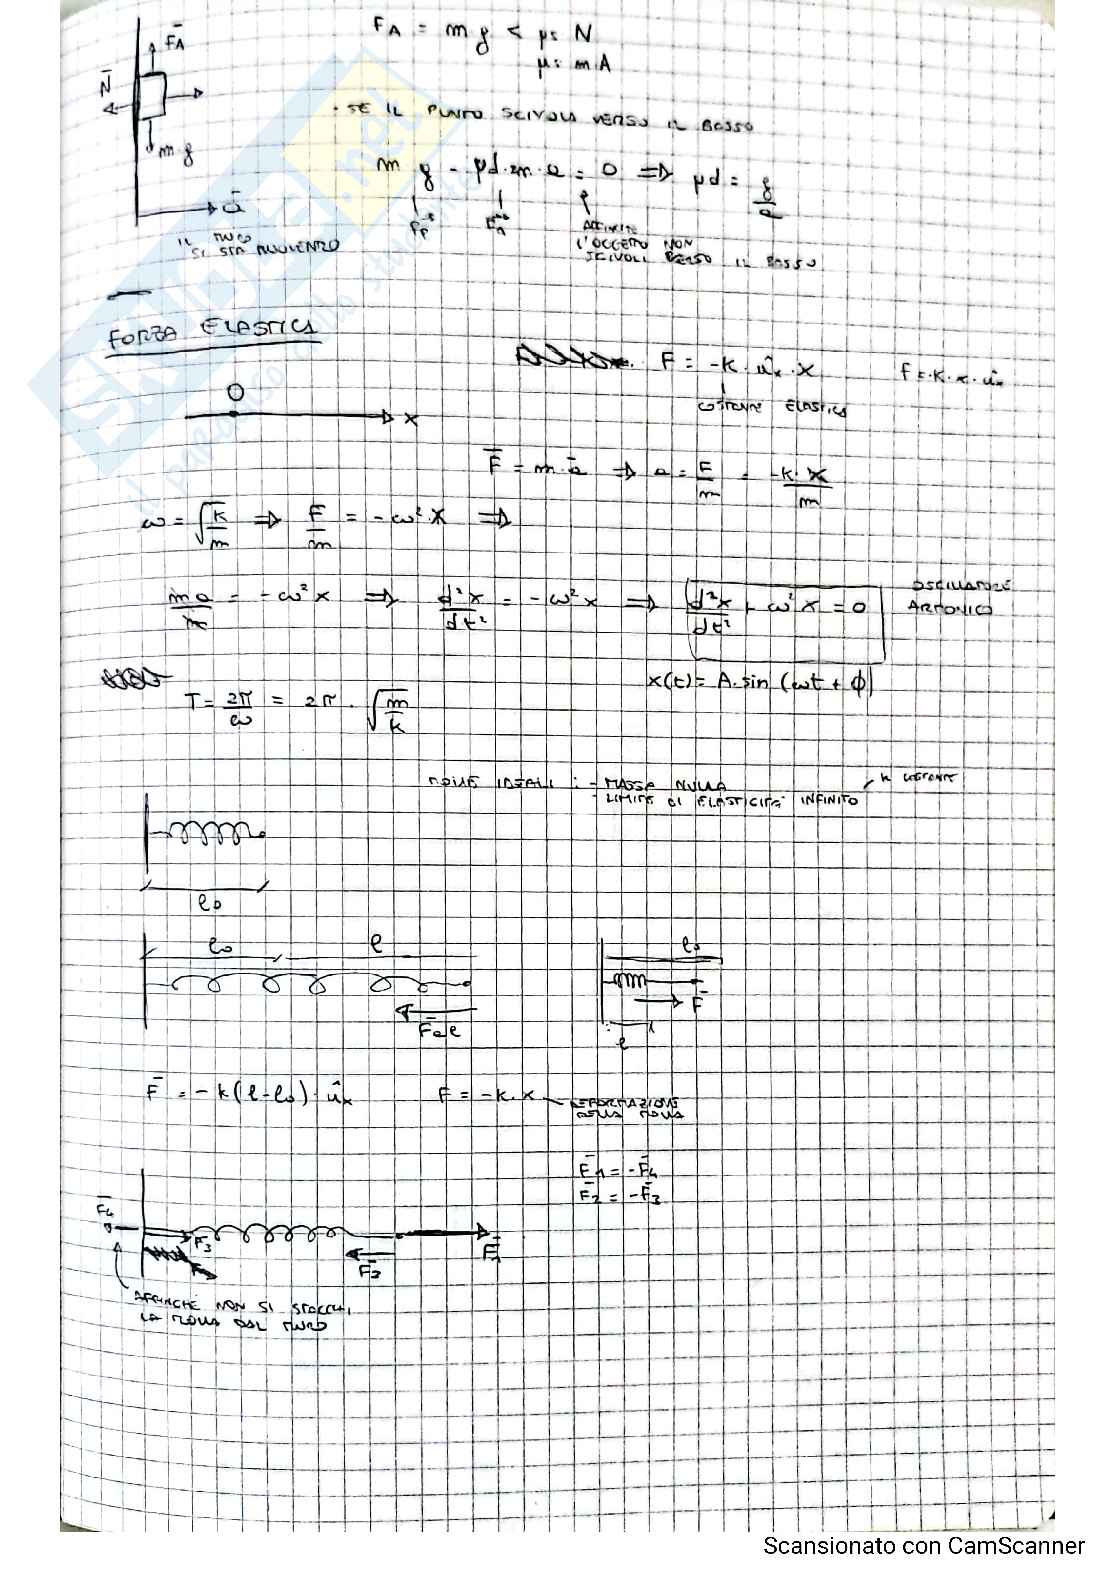 F̄A
FA = m g < μs N
N̄
μs m A
· SE IL PUNTO SCIVOLA VERSO IL BASSO
m·g
m g - μd·m·a = 0 => μd = g/a
ā
IL MURO
SI STA MUOVENDO
AFFINCHÈ
L'OGGETTO NON
SCIVOLI VERSO IL BASSO
FORZA ELASTICA
F = -K · ûx · x
F = -K · x · ûx
COSTANTE ELASTICA
O
x
F̄ = m·ā => a = F/m = -K·x/m
ω = √(K/m) => F/m = -ω²·x =>
m a/m = -ω² x => d²x/dt² = -ω² x => d²x/dt² + ω² x = 0
OSCILLATORE
ARMONICO
x(t) = A·sin (ωt + ϕ)
T = 2π/ω = 2π · √(m/k)
MOLLE IDEALI : - MASSA NULLA
- LIMITE DI ELASTICITÀ INFINITO
K COSTANTE
l0
l0 l
l0
F̄
F̄el
l
F̄ = -k(l-l0) · ûx
F = -k·x
DEFORMAZIONE
DELLA MOLLA
F̄1 = -F̄4
F̄2 = -F̄3
F̄4
F̄3
F̄2
F̄1
AFFINCHÈ NON SI STACCHI
LA MOLLA DAL MURO
Scansionato con CamScanner